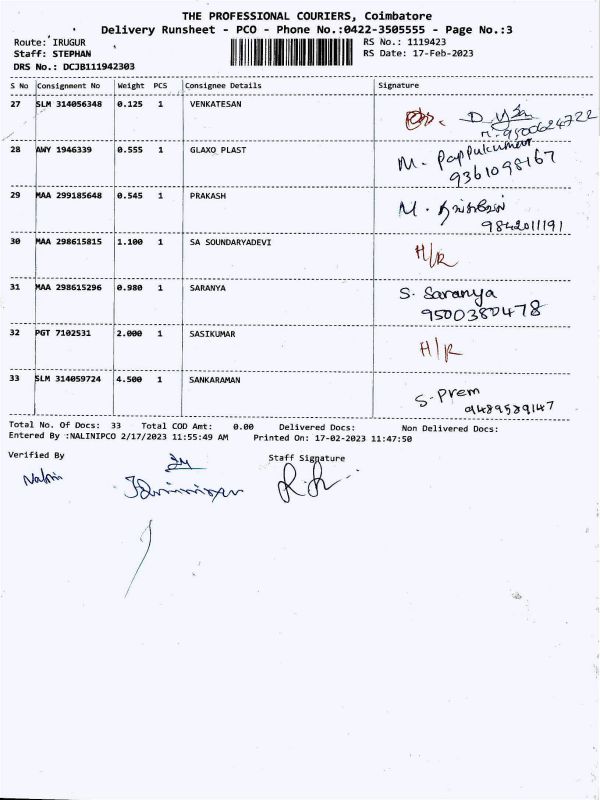 THE PROFESSIONAL COURIERS, Coimbatore
Delivery Runsheet - PCO - Phone No.:0422-3505555 - Page No.:3
Route: IRUGUR RS No.: 1119423
Staff: STEPHAN RS Date: 17-Feb-2023
DRS No.: DCJB111942303
S No Consignment No Weight PCS Consignee Details Signature
27 SLM 314056348 0.125 1 VENKATESAN
28 AWY 1946339 0.555 1 GLAXO PLAST M. Pappukumar
9361098167
29 MAA 299185648 0.545 1 PRAKASH M.
9842011191
30 MAA 298615815 1.100 1 SA SOUNDARYADEVI H/R
31 MAA 298615296 0.980 1 SARANYA S. Saranya
9500380478
32 PGT 7102531 2.000 1 SASIKUMAR H/R
33 SLM 314059724 4.500 1 SANKARAMAN S. Prem
9489589147
Total No. Of Docs: 33 Total COD Amt: 0.00 Delivered Docs: Non Delivered Docs:
Entered By :NALINIPCO 2/17/2023 11:55:49 AM Printed On: 17-02-2023 11:47:50
Verified By Staff Signature
Nalini